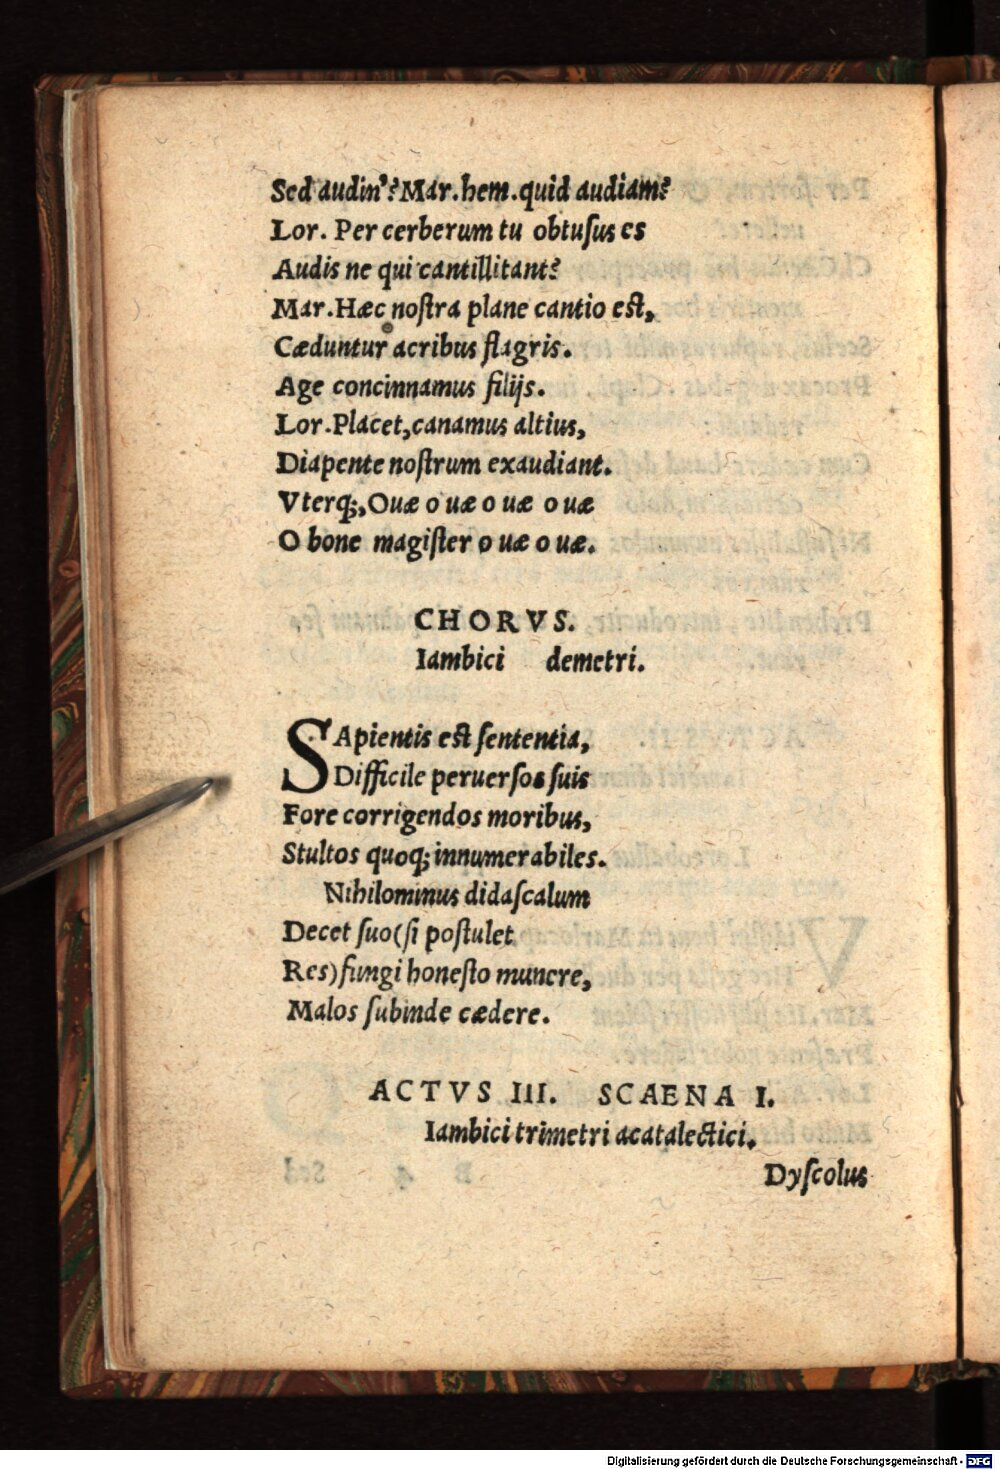 Sed audin'? Mar. hem. quid audiam?
Lor. Per cerberum tu obtuſus es
Audis ne qui cantillitant?
Mar. Hæc noſtra plane cantio eſt,
Cæduntur acribus flagris.
Age concinnamus filijs.
Lor. Placet, canamus altius,
Diapente noſtrum exaudiant.
Vterq;, Ouæ o uæ o uæ o uæ
O bone magiſter o uæ o uæ.
CHORVS.
Iambici demetri.
SApientis eſt ſententia,
Difficile peruerſos ſuis
Fore corrigendos moribus,
Stultos quoq; innumerabiles.
Nihilominus didaſcalum
Decet ſuo (ſi poſtulet
Res) fungi honeſto munere,
Malos ſubinde cædere.
ACTVS III. SCAENA I.
Iambici trimetri acatalectici.
Dyſcolus
Digitalisierung gefördert durch die Deutsche Forschungsgemeinschaft - DFG